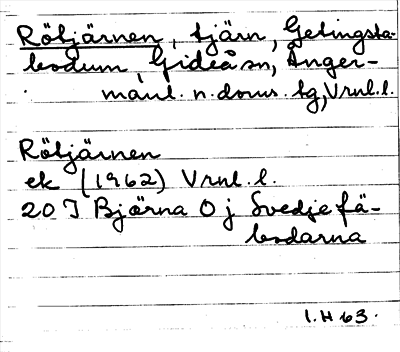 Rötjärnen, tjärn, Getingsta-
bodum, Gideå sn, Ånger-
manl. n. doms. tg, Vrnl. l.
Rötjärnen
ek (1962) Vrnl. l.
20 I Björna O j Svedjefä-
bodarna
I. H 63.